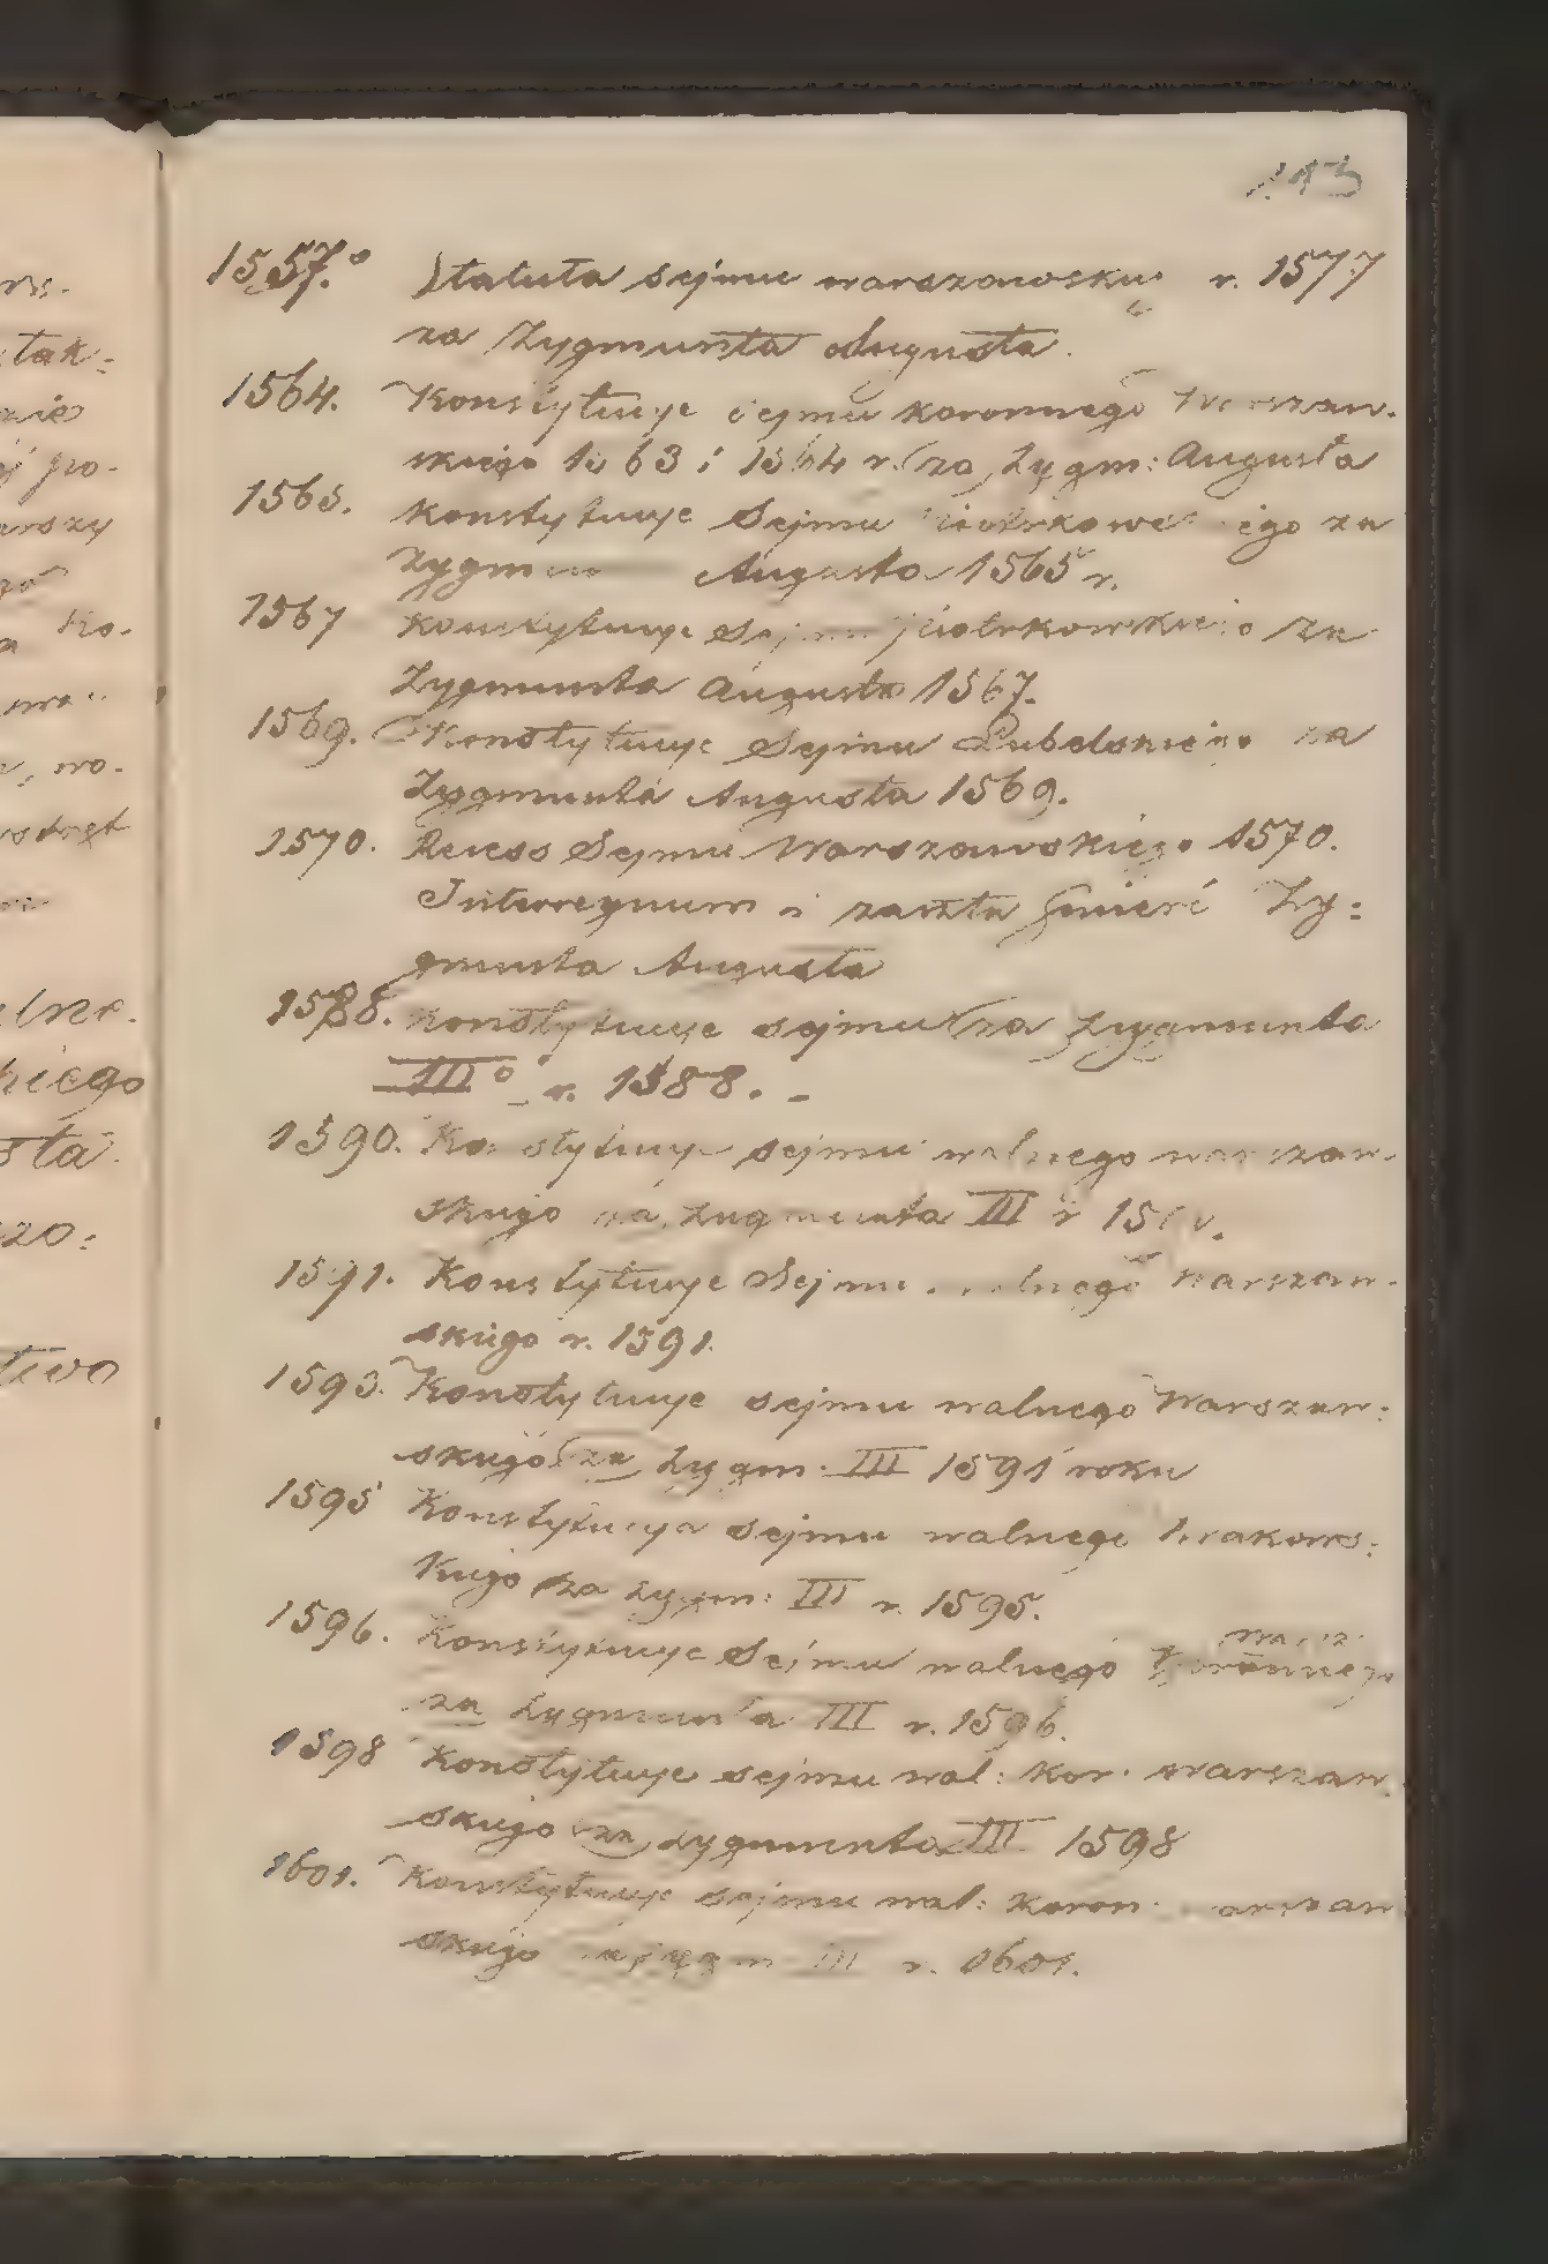 1557.° Statuta sejmu warszawsku r. 1577
za Zygmunta Augusta.
1564. Konstytucye sejmu koronnego Warszaw.
skiego 1563 i 1564 r. za Zygm: Augusta
1565. Konstytucye Sejmu ego za
Augusta 1565 r.
1567 Konstytucye Piotrkowskiego za
Zygmunta Augusta 1567.
1569. Konstytucye Sejmu Lubelskiego za
Zygmunta Augusta 1569.
1570. Recess Sejmu Warszawskiego 1570.
Interregnum i zaszła śmierć Zy:
gmunta Augusta
1588. Konstytucye sejmu za Zygmunta
III° r. 1588. -
1590. sejmu walnego warszaw.
skiego za Zygmunta III r
1591. Konstytucye Sejmu Warszaw.
skiego r. 1591.
1593. Konstytucye sejmu walnego Warszaw:
skiego za Zygm. III 1591 roku
1595 Konstytucya sejmu walnego Krakows:
kiego za Zygm: III r. 1595.
1596. Konstytucye Sejmu walnego
za Zygmunta III r. 1596.
1598 Konstytucye sejmu wal: kor. warszaw.
skiego za Zygmunta III 1598
1601. Konstytucye sejmu wal: koron.
skiego III r. 1601.
tak:
nie
po-
Ko-
wo-
kiego
sta
zo: